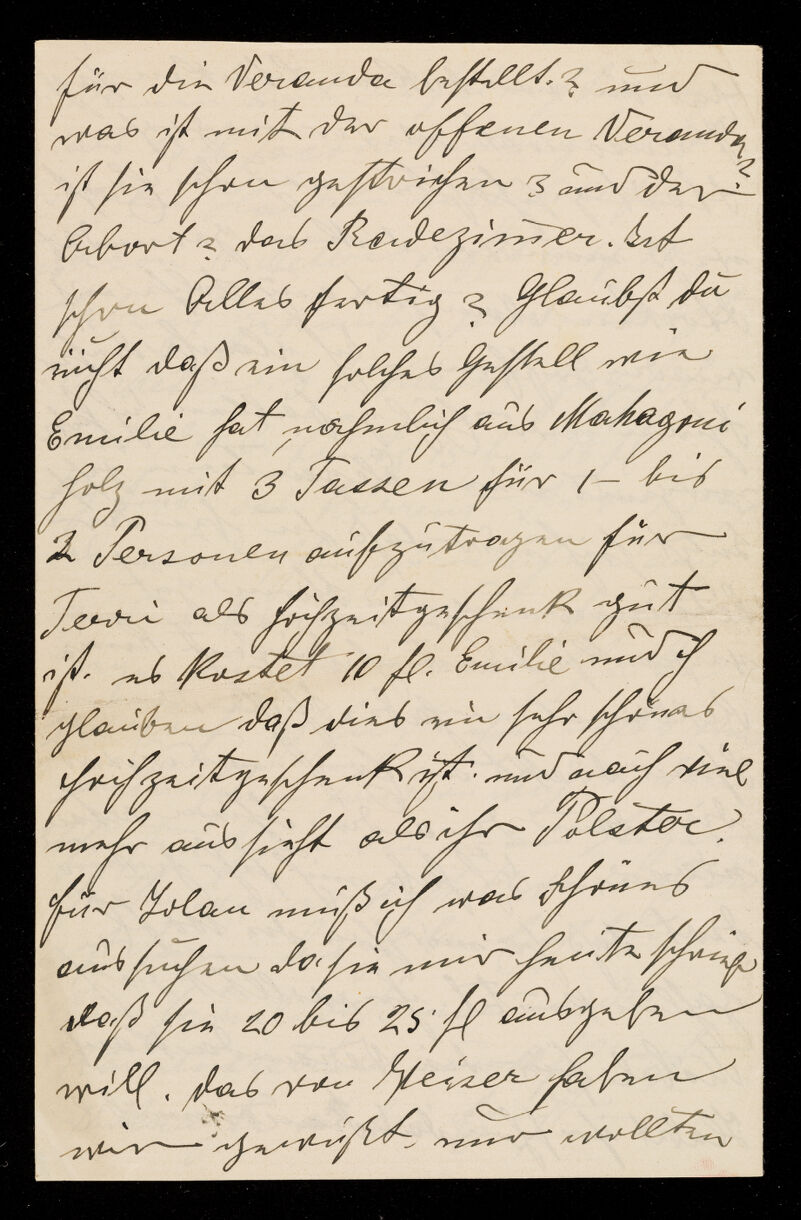 für die Veranda bestellt.? und
was ist mit der offenen Veranda?
ist sie schon gestrichen? und der
Abort? das Badezimmer. Ist
schon Alles fertig? Glaubst du
nicht daß ein solches Gestell wie
Emilie hat, nähmlich aus Mahagoni
holz mit 3 Tassen für 1 – bis
2 Personen aufzutragen für
als Hochzeitgeschenk gut
ist. es kostet 10 fl. Emilie und ich
glauben daß dies ein sehr schönes
Hochzeitgeschenk ist. und nach viel
mehr aussieht als ihr Polster.
für Jolan muß ich was schönes
aussuchen da sie mir heute schrieb
daß sie 20 bis 25 fl ausgeben
will. das von haben
wir gewußt. nur wollten